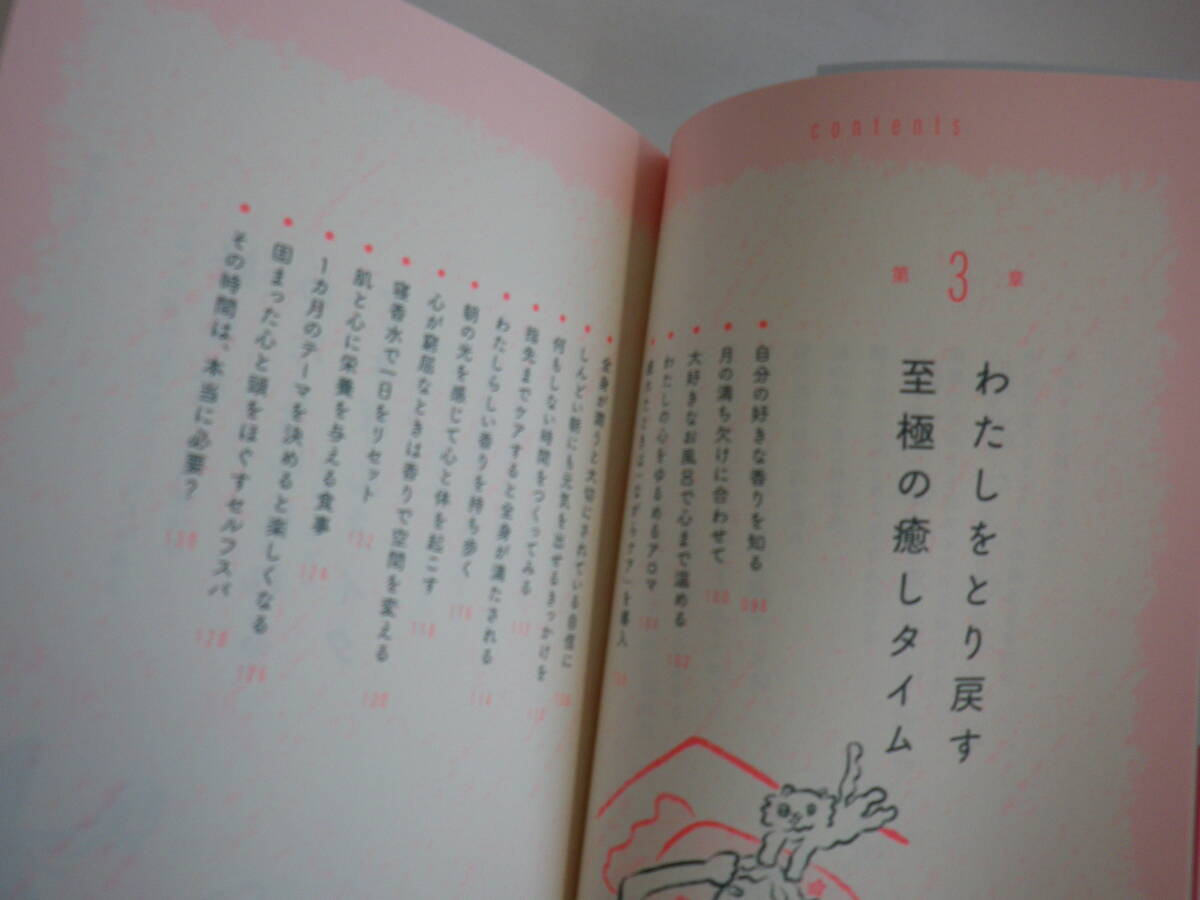 contents
第3章
わたしをとり戻す
至極の癒しタイム
自分の好きな香りを知る 098
月の満ち欠けに合わせて 100
大好きなお風呂で心まで温める 102
わたしの心をゆるめるアロマ 104
疲れたときは「ながらケア」を導入
全身が潤うと大切にされている自信に 108
しんどい朝にも元気を出せるきっかけを 110
何もしない時間をつくってみる 112
指先までケアすると全身が満たされる 114
わたしらしい香りを持ち歩く 116
朝の光を感じて心と体を起こす 118
心が窮屈なときは香りで空間を変える 120
寝香水で一日をリセット 122
肌と心に栄養を与える食事 124
1カ月のテーマを決めると楽しくなる 126
固まった心と頭をほぐすセルフスパ 128
その時間は、本当に必要? 130